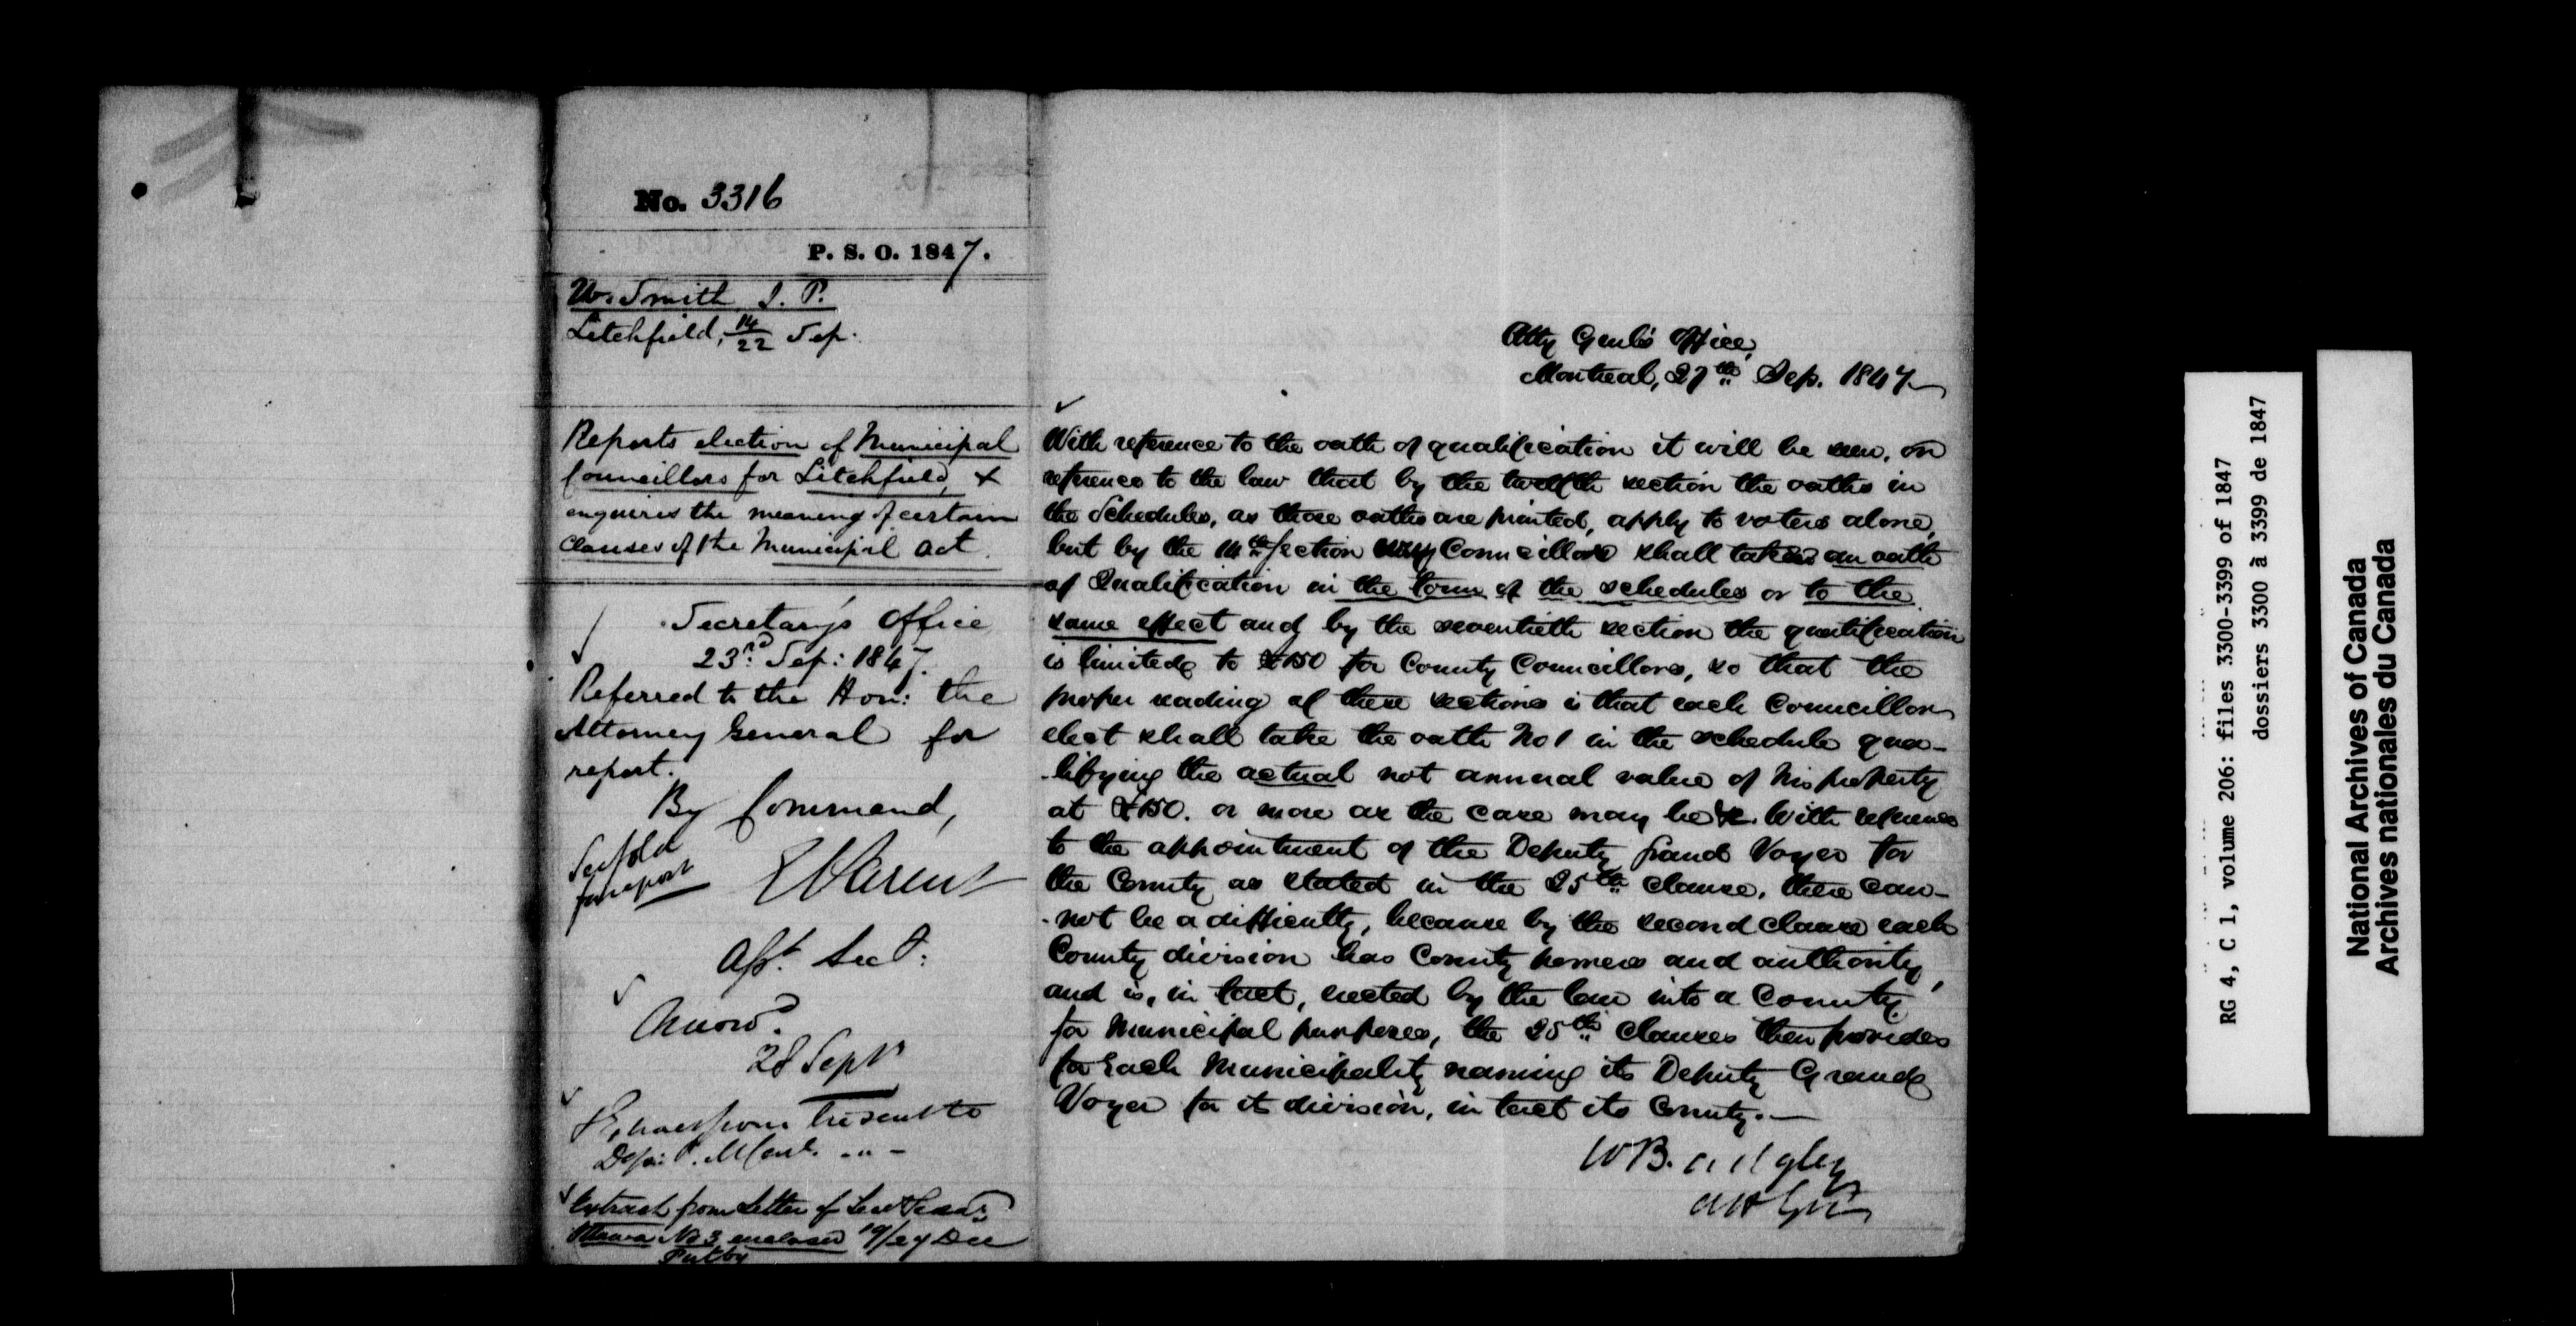 No. 3316
P. S. O. 1847.
W. Smith J. P.
Litchfield, 14/22 Sep.
Reports election of Municipal
Councillors for Litchfield, &
enquires the meaning of certain
clauses of the Municipal Act.
Secretary's Office
23rd Sep: 1847.
Referred to the Hon: the
Attorney General for
report.
By Command,
See fold
for report
E Parent
Asst. Secy:
Answd.
28 Sept
Extract from
Extract from Letter of
Ottawa No 3 enclosed 19/24 Dec
Put by
Atty Genl's Office,
Montreal, 27th Sep. 1847
With reference to the oath of qualification it will be seen, on
reference to the law that by the twelfth section the oaths in
the Schedules, as those oaths are printed, apply to voters alone,
but by the 14th section Councillors shall take an oath
of Qualification in the form of the schedules or to the
same effect and by the seventieth section the qualification
is limited to £150 for County Councillors, so that the
proper reading of these sections is that each Councillor
elect shall take the oath No 1 in the schedule qua-
-lifying the actual not annual value of his property
at £150. or more as the case may be. With reference
to the appointment of the Deputy Grand Voyer for
the County as stated in the 25th clause, there can-
-not be a difficulty, because by the second clause each
County division has County powers and authority,
and is, in fact, erected by the law into a County
for Municipal purposes, the 25th clauses then provides
for each Municipality naming its Deputy Grand
Voyer for its division, in fact its County.—
W Badgley
Att Gen
RG 4, C 1, volume 206: files 3300-3399 of 1847
dossiers 3300 à 3399 de 1847
National Archives of Canada
Archives nationales du Canada